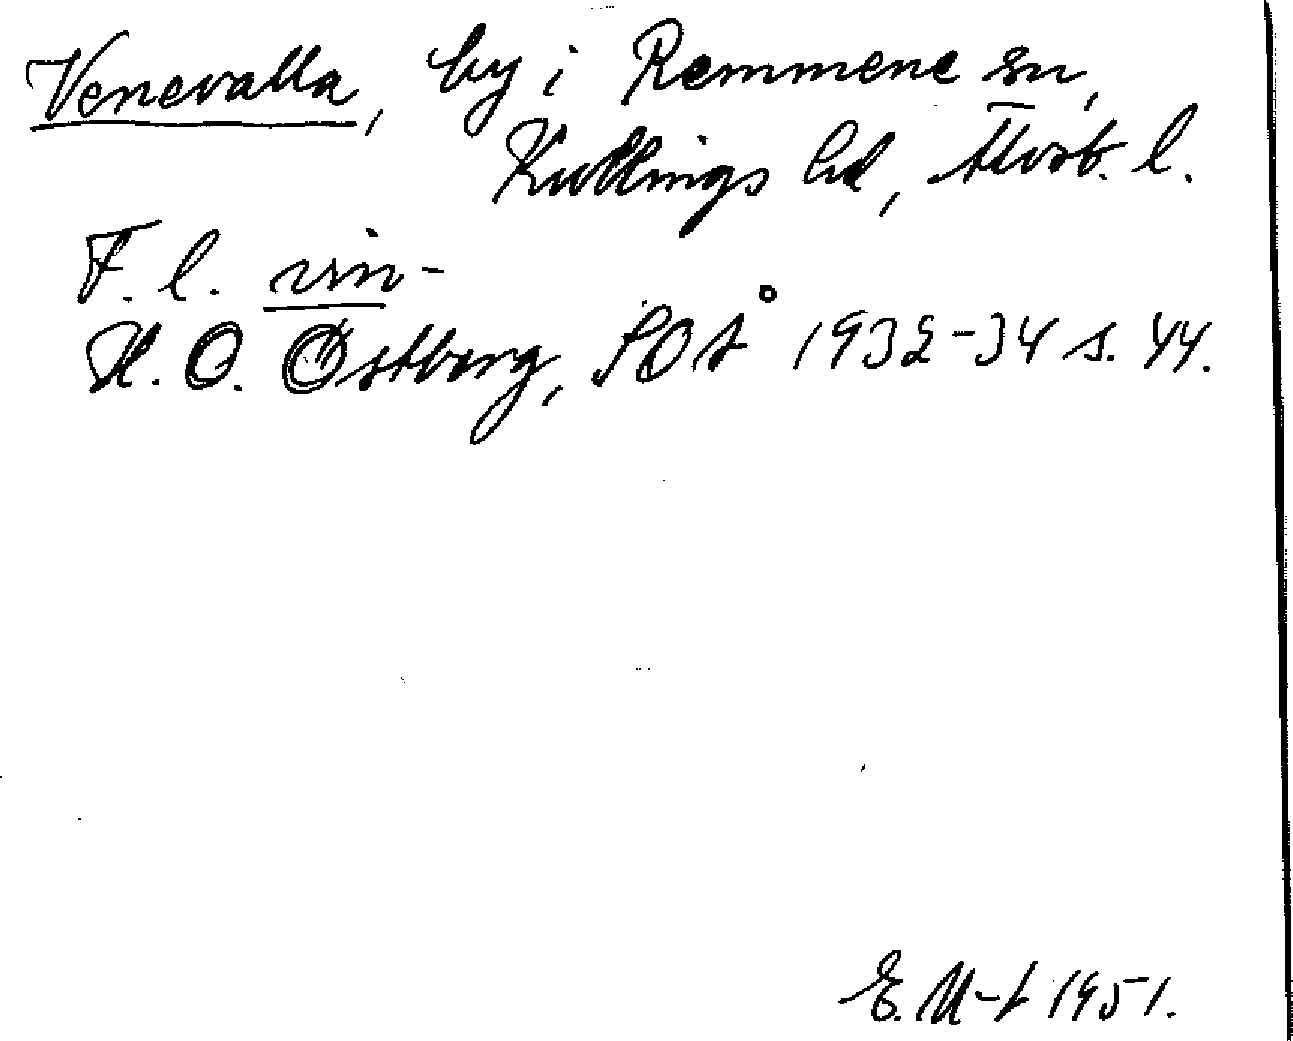 Venevalla, by i Remmene sn,
Kullings hd, Älvsb. l.
F. l. vin-
H. O. Östberg, SOÅ 1932-34 s. 44.
E. M-t 1951.